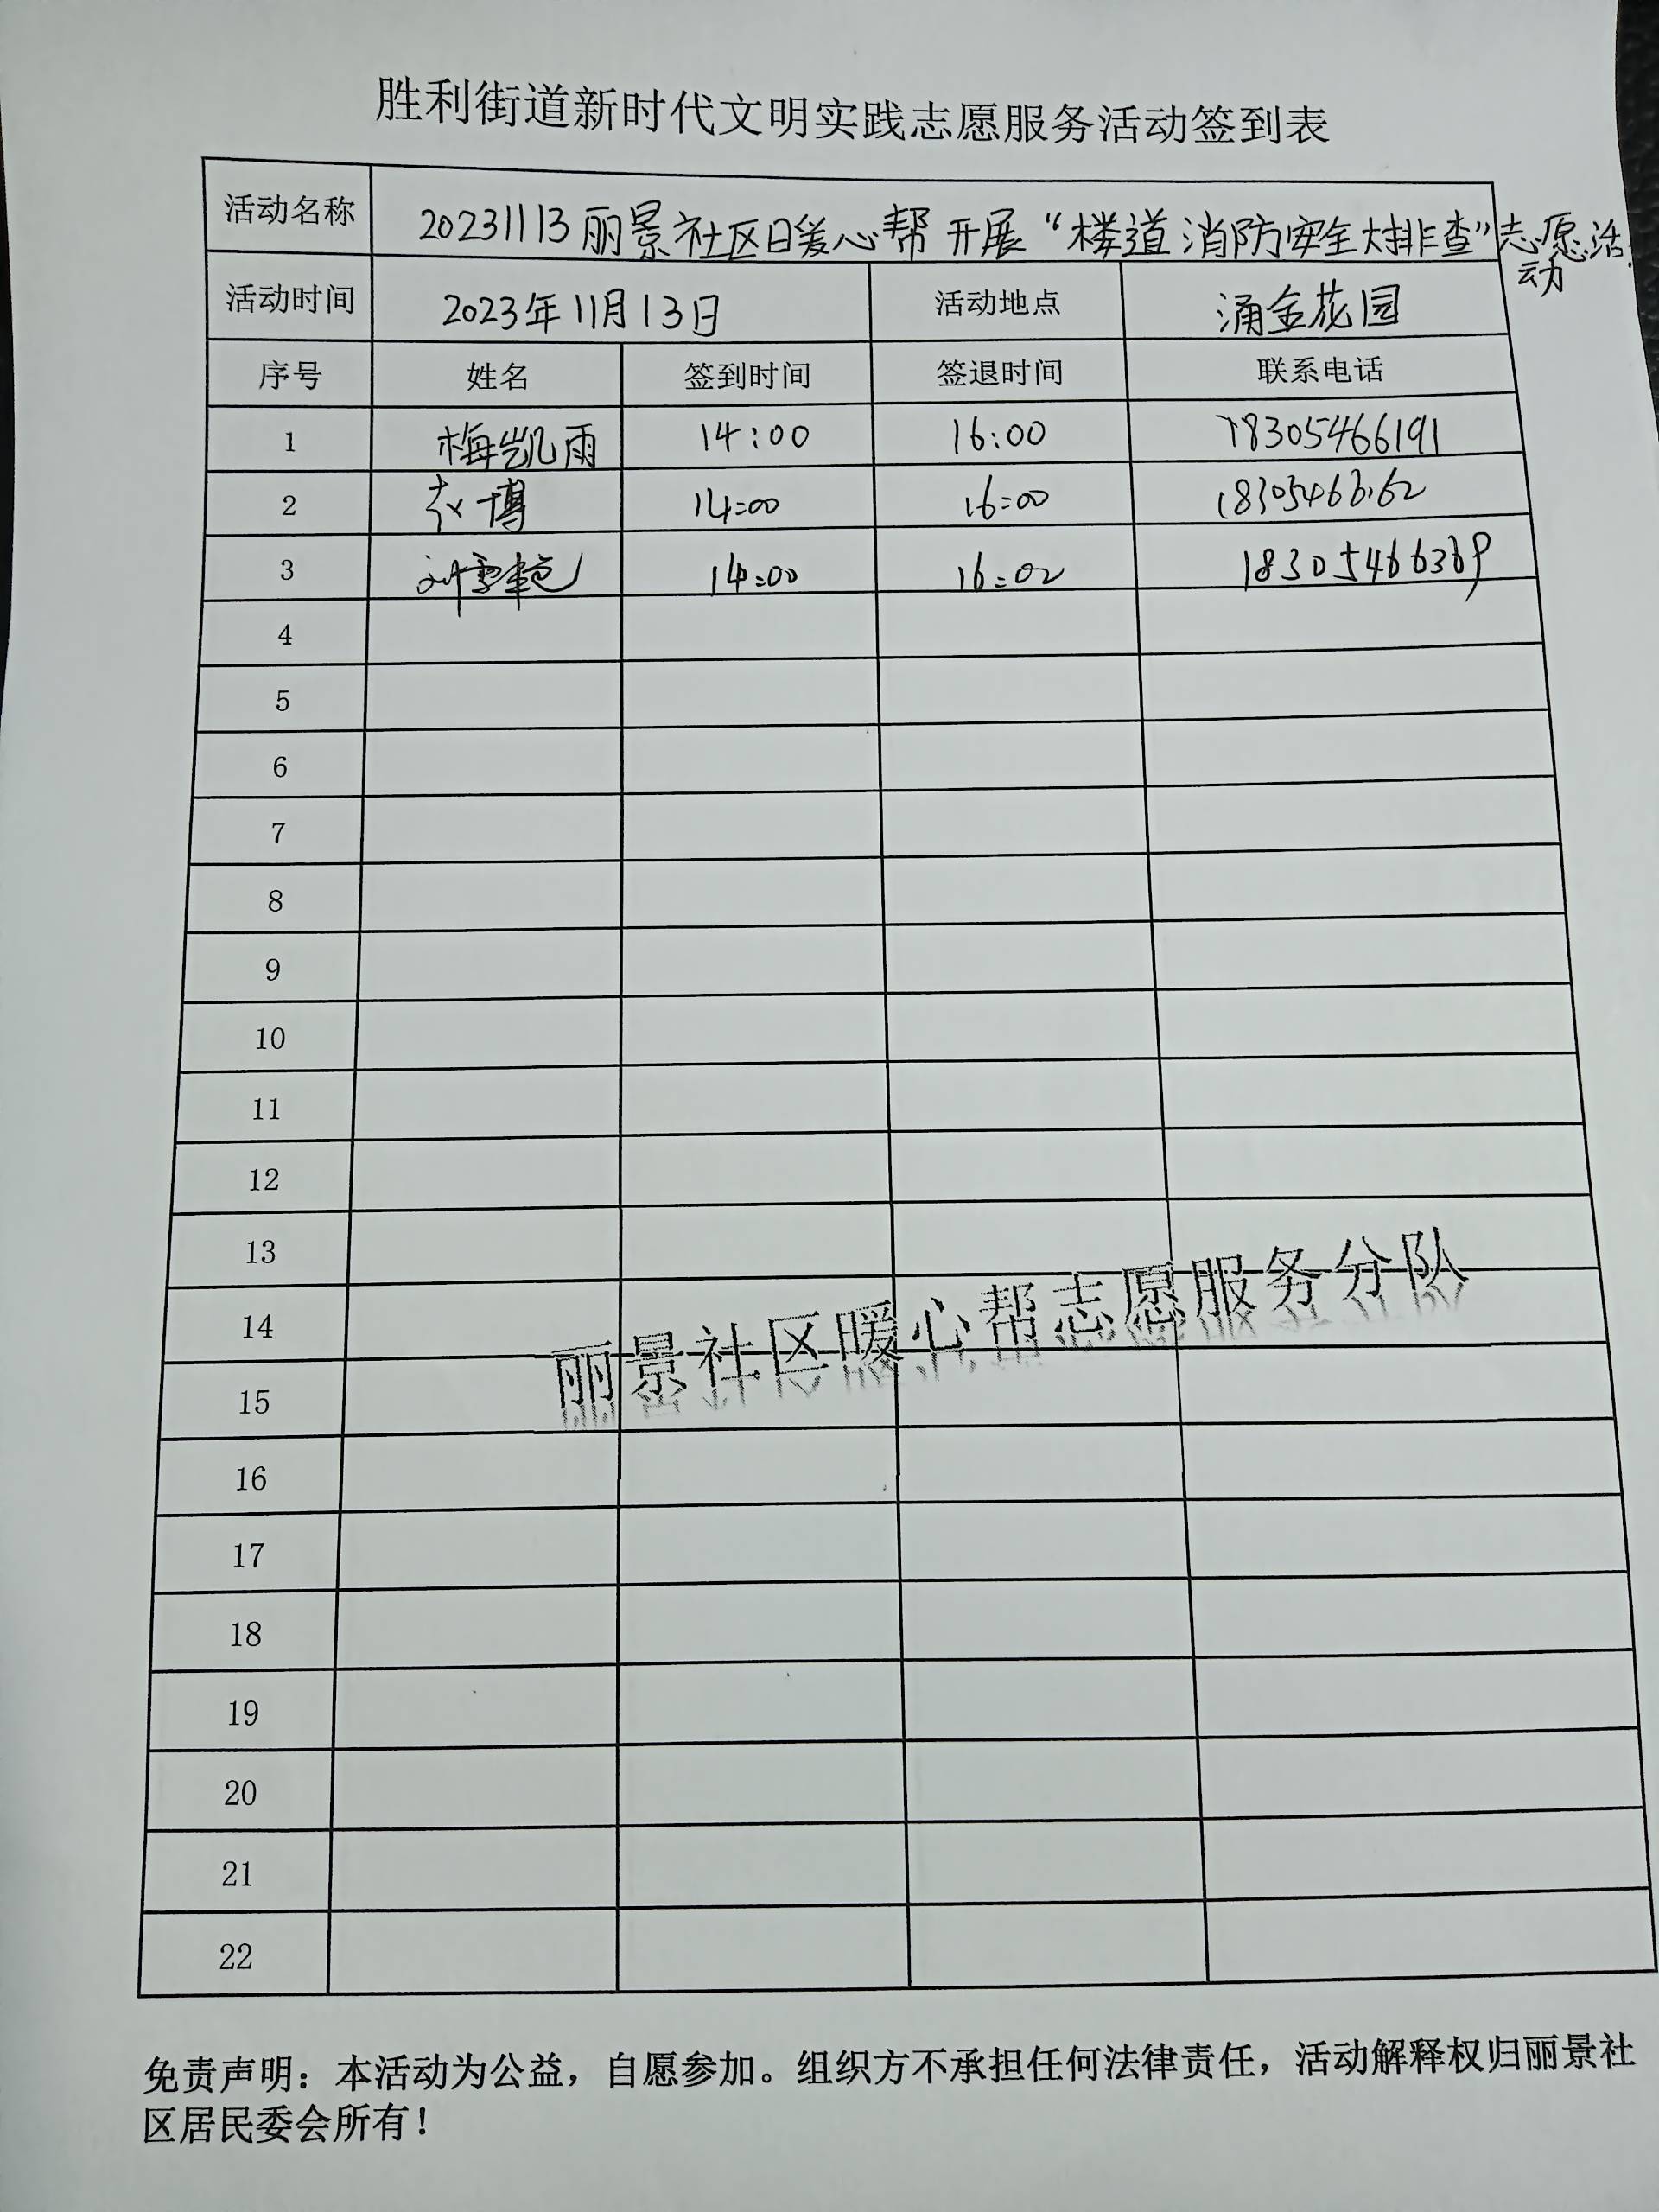 胜利街道新时代文明实践志愿服务活动签到表
活动名称 20231113丽景社区暖心帮开展“楼道消防安全大排查”志愿活动
活动时间 2023年11月13日 活动地点 涌金花园
序号 姓名 签到时间 签退时间 联系电话
1 梅凯雨 14:00 16:00 18305466191
2 赵博 14:00 16:00
3 14:00 16:02 18305466369
4
5
6
7
8
9
10
11
12
13
14
15
16
17
18
19
20
21
22
丽景社区暖心帮志愿服务分队
免责声明：本活动为公益，自愿参加。组织方不承担任何法律责任，活动解释权归丽景社
区居民委会所有！